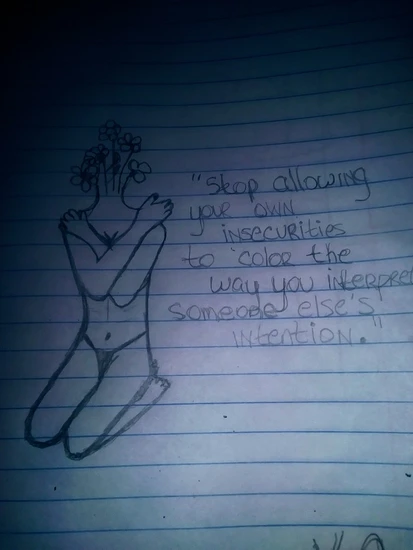 "Stop allowing
your own
insecurities
to color the
way you interpret
someone else's
intention."